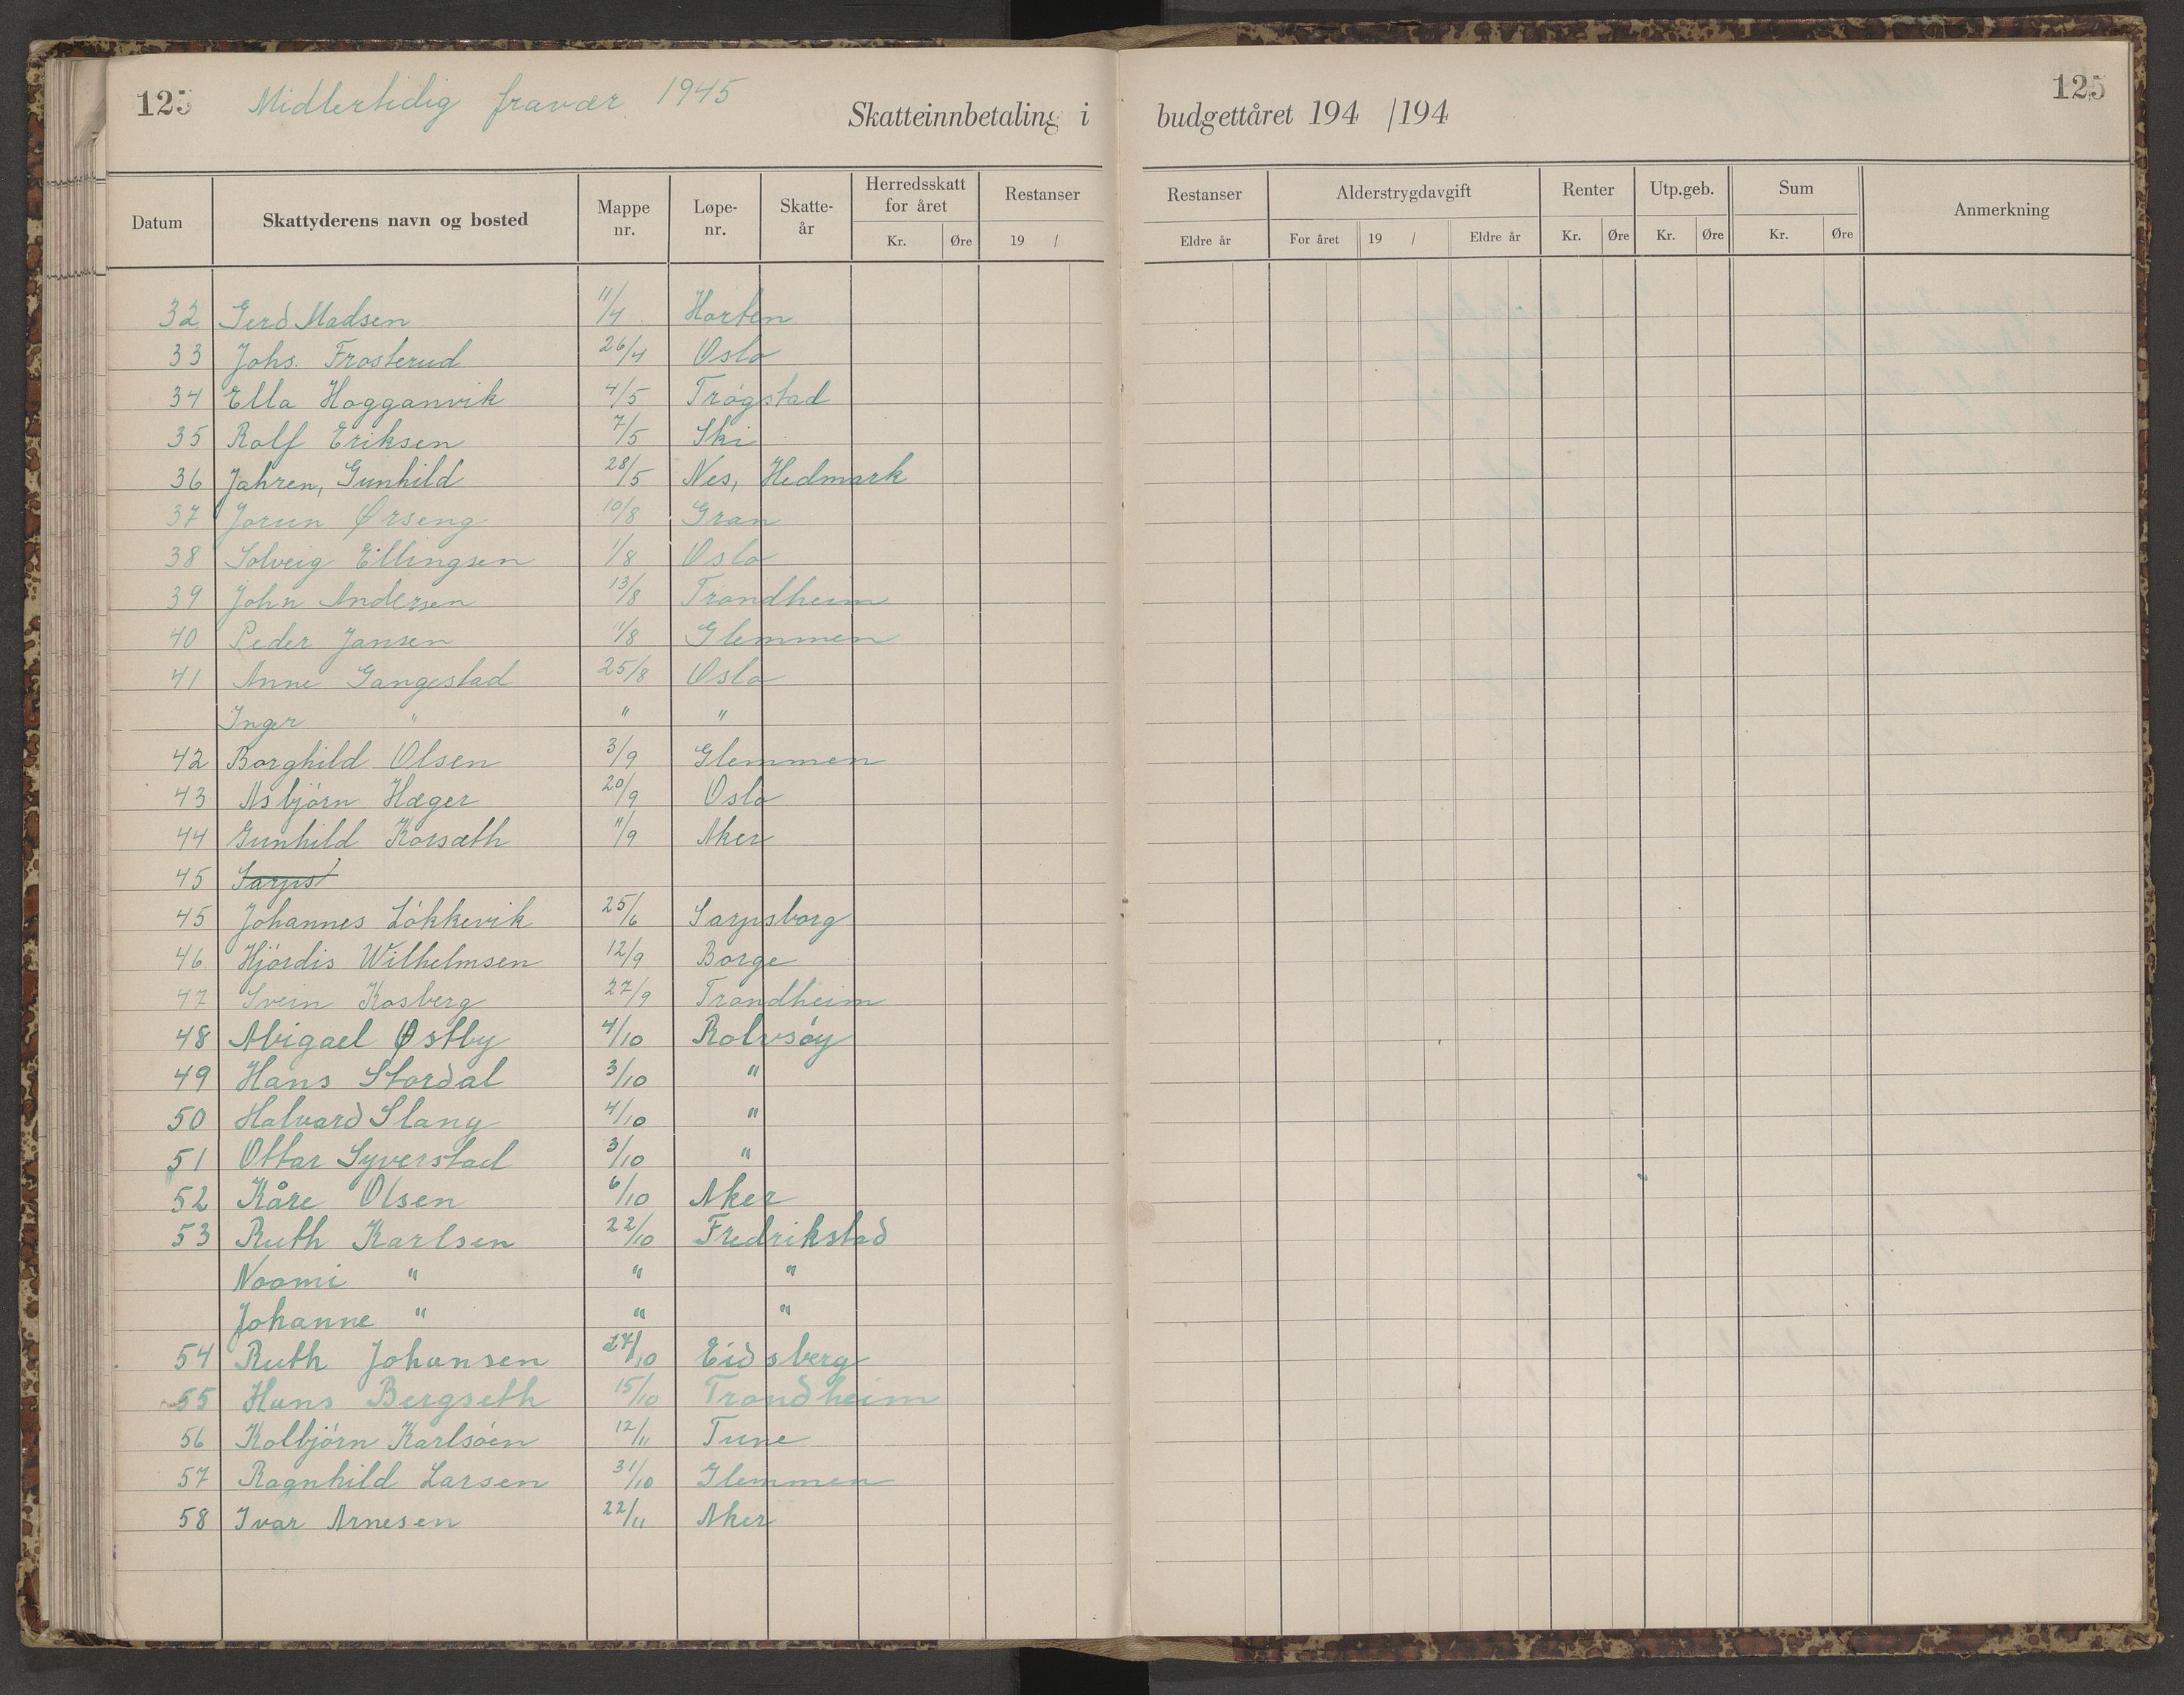 125 Midlertidig fravær 1945
Skatteinnbetaling i budgettåret 194 /194
125
Datum Skattyderens navn og bosted Mappe nr. Løpe-nr. Skatte-år Herredsskatt for året Kr. Øre Restanser 19 /
Restanser Eldre år Alderstrygdavgift For året 19 / Eldre år Renter Kr. Øre Utp.geb. Kr. Øre Sum Kr. Øre Anmerkning
32 Gerd Madsen 11/4 Horten
33 Johs. Frosterud 26/4 Oslo
34 Ella Hogganvik 4/5 Trøgstad
35 Rolf Eriksen 7/5 Ski
36 Jahren, Gunhild 28/5 Nes, Hedmark
37 Jorun Ørseng 10/8 Gran
38 Solveig Ellingsen 1/8 Oslo
39 John Andersen 13/8 Trondheim
40 Peder Jansen 11/8 Glemmen
41 Anne Gangestad 25/8 Oslo
Inger " " "
42 Borghild Olsen 3/9 Glemmen
43 Asbjørn Hæger 20/9 Oslo
44 Gunhild Korsæth 11/9 Aker
45 Sarps
45 Johannes Løkkevik 25/6 Sarpsborg
46 Hjørdis Wilhelmsen 12/9 Borge
47 Svein Kosberg 27/9 Trondheim
48 Abigael Østby 4/10 Rolvsøy
49 Hans Stordal 3/10 "
50 Halvard Slang 4/10 "
51 Ottar Syverstad 3/10 "
52 Kåre Olsen 6/10 Aker
53 Ruth Karlsen 22/10 Fredrikstad
Noomi " " "
Johanne " " "
54 Ruth Johansen 27/10 Eidsberg
55 Hans Bergseth 15/10 Trondheim
56 Kolbjørn Karlsøen 12/11 Tune
57 Ragnhild Larsen 31/10 Glemmen
58 Ivar Arnesen 22/11 Aker